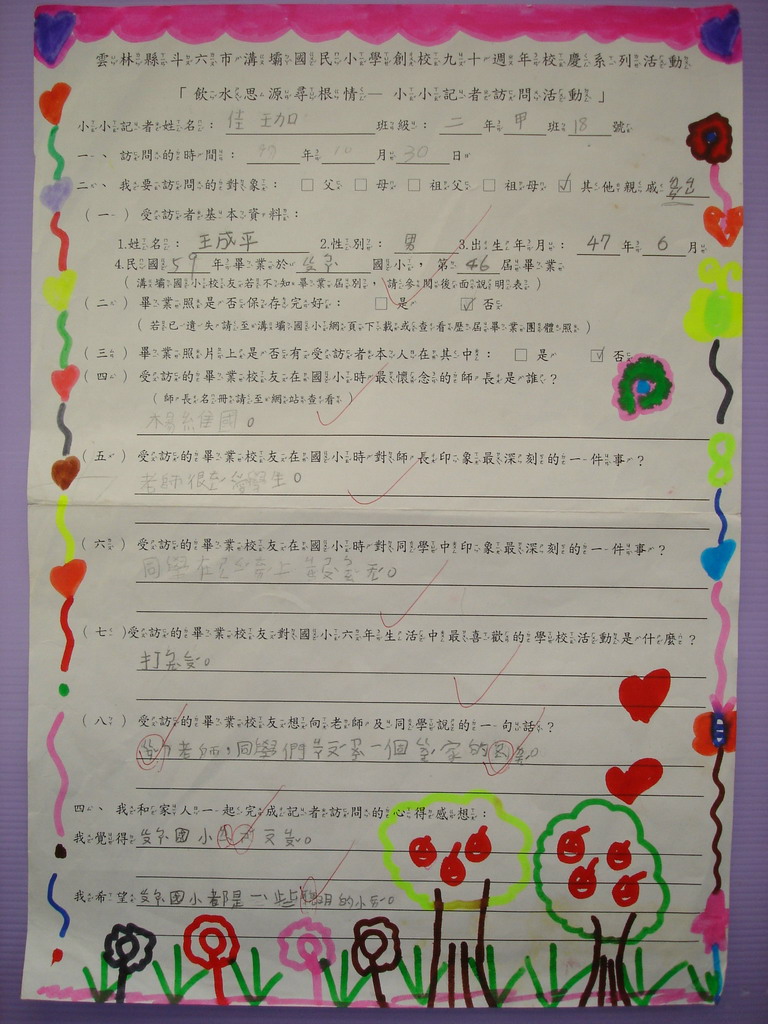 雲林縣斗六市溝壩國民小學創校九十週年校慶系列活動
「飲水思源尋根情— 小小記者訪問活動」
小小記者姓名： 班級：二年甲班18號
一、訪問的時間： 年10月30日
二、我要訪問的對象：□父 □母 □祖父 □祖母 ☑其他親戚
（一）受訪者基本資料：
1.姓名：王成平 2.性別：男 3.出生年月：47年6月
4.民國59年畢業於 國小，第46屆畢業
（溝壩國小校友若不知畢業屆別，請參閱後面說明表）
（二）畢業照是否保存完好：□是 ☑否
（若已遺失請至溝壩國小網頁下載或查看歷屆畢業團體照）
（三）畢業照片上是否有受訪者本人在其中：□是 ☑否
（四）受訪的畢業校友在國小時最懷念的師長是誰？
（師長名冊請至網站查看）
（五）受訪的畢業校友在國小時對師長印象最深刻的一件事？
老師很 學生。
（六）受訪的畢業校友在國小時對同學中印象最深刻的一件事？
同學在 上
（七）受訪的畢業校友對國小六年生活中最喜歡的學校活動是什麼？
打
（八）受訪的畢業校友想向老師及同學說的一句話？
老師，同學們 一個 家的
四、我和家人一起完成記者訪問的心得感想：
我覺得 國小
我希望 國小都是一些 明的小